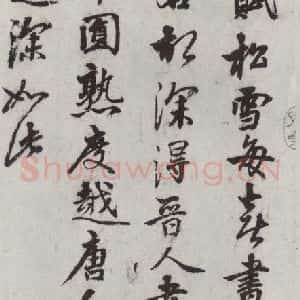 賦松雪每喜書
深得晉人書
圓熟度越唐人
深如法
Shufawang.CN